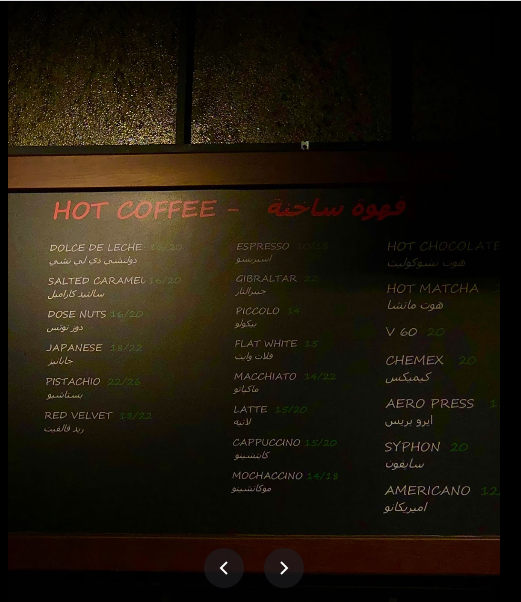 HOT COFFEE - قهوة ساخنة
DOLCE DE LECHE 16/20
دولتشي دي لي تشي
SALTED CARAMEL 16/20
سالتيد كاراميل
DOSE NUTS 16/20
دوز نوتس
JAPANESE 18/22
جابانيز
PISTACHIO 22/26
بستاشيو
RED VELVET 18/22
ريد فالفيت
ESPRESSO
اسبريسو
GIBRALTAR 22
جبرالتار
PICCOLO 14
بيكولو
FLAT WHITE 15
فلات وايت
MACCHIATO 14/22
ماكياتو
LATTE 15/20
لاتيه
CAPPUCCINO 15/20
كابتشينو
MOCHACCINO 14/18
موكاتشينو
HOT CHOCOLATE
هوت شوكوليت
HOT MATCHA
هوت ماتشا
V 60 20
CHEMEX 20
كيمكس
AERO PRESS 1
ايرو بريس
SYPHON 20
سايفون
AMERICANO 12
امريكانو